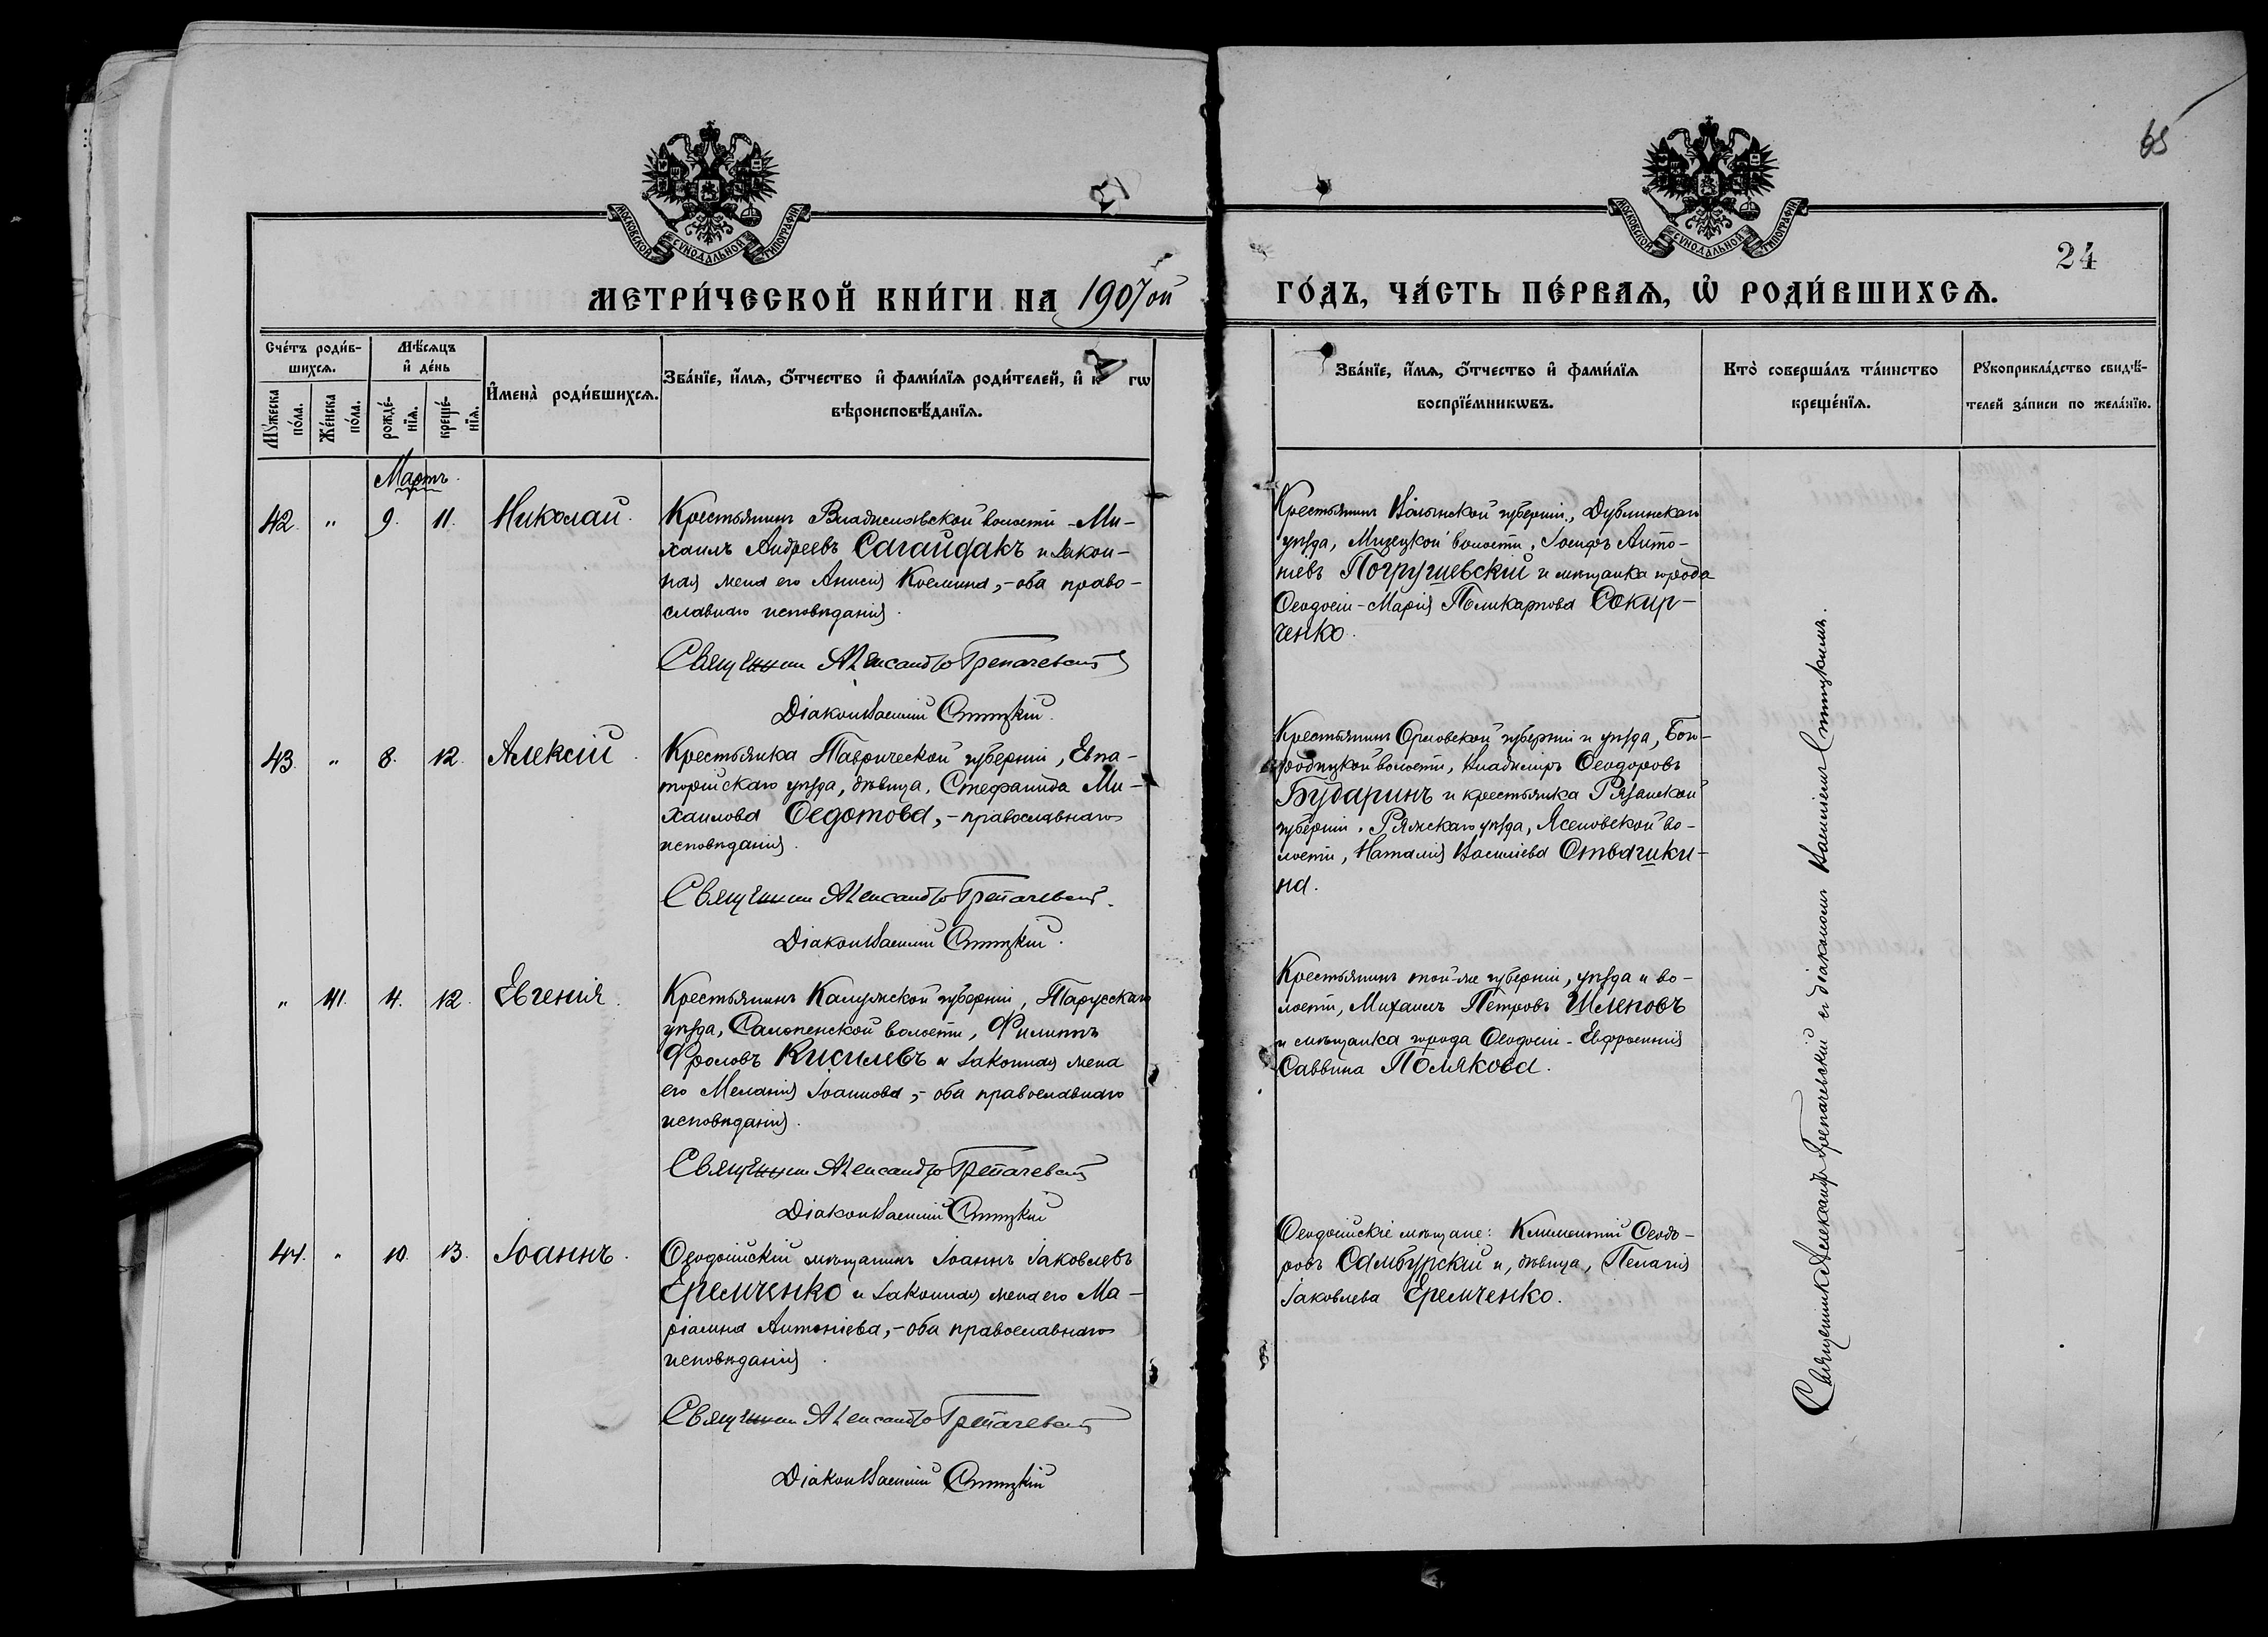 65
МОСКОВСКОЙ СѴНОДАЛЬНОЙ ТИПОГРАФІИ
МОСКОВСКОЙ СѴНОДАЛЬНОЙ ТИПОГРАФІИ
24
МЕТРИ́ЧЕСКОЙ КНИ́ГИ НА 1907 ой
ГО́ДЪ, ЧА́СТЬ ПЕ́РВАѦ, Ѡ҆ РОДИ́ВШИХСѦ.
Сче́тъ роди́в-
шихсѧ.
Мꙋ́жеска по́ла.
Же́нска по́ла.
Мѣ́сѧцъ
и҆ де́нь
рожде́-
нїѧ.
креще́-
нїѧ.
И҆мена̀ роди́вшихсѧ.
Зва́нїе, и҆́мѧ, ѻ҆́тчество и҆ фами́лїѧ роди́телей, и҆ к гѡ
вѣроисповѣ́данїѧ.
Зва́нїе, и҆́мѧ, ѻ҆́тчество и҆ фами́лїѧ
воспрїе́мникѡвъ.
Кто̀ соверша́лъ та́инство
креще́нїѧ.
Рꙋкоприкла́дство свидѣ́-
телей за́писи по жела́нїю.
Мартъ.
42. " 9. 11. Николай.
Крестьянинъ Владиславской волости Ми-
хаилъ Андреевъ Сагайдакъ и закон-
ная жена его Анисія Космина,- оба право-
славнаго исповѣданія.
Священникъ Александръ Грепачевскій
Діаконъ Василій Стицкій.
Крестьянинъ Волынской губерніи, Дублинскаго
уѣзда, Мизецкой волости, Іосифъ Анто-
ніевъ Погрушевскій и мѣщанка города
Ѳеодосіи - Марія Поликарпова Сокир-
ченко.
43. " 8. 12. Алексій.
Крестьянка Таврической губерніи, Евпа-
торійскаго уѣзда, дѣвица, Стефанида Ми-
хаилова Ѳедотова,- православнаго
исповѣданія.
Священникъ Александръ Грепачевскій.
Діаконъ Василій Стицкій.
Крестьянинъ Орловской губерніи и уѣзда, Бого-
родицкой волости, Владиміръ Ѳеодоровъ
Бударинъ и крестьянка Рязанской
губерніи, Ряжскаго уѣзда, Ясеновской во-
лости, Наталія Василіева Отвагики-
на.
" 41. 4. 12. Евгенія.
Крестьянинъ Калужской губерніи, Тарусскаго
уѣзда, Салопенской волости, Филиппъ
Фроловъ Кисилевъ и законная жена
его Меланія Іоаннова,- оба православнаго
исповѣданія.
Священникъ Александръ Грепачевскій
Діаконъ Василій Стицкій
Крестьянинъ той-же губерніи, уѣзда и во-
лости, Михаилъ Петровъ Шленовъ
и мѣщанка города Ѳеодосіи - Евфросинія
Саввина Полякова.
44. " 10. 13. Іоаннъ.
Ѳеодосійскій мѣщанинъ Іоаннъ Іаковлевъ
Еремченко и законная жена его Ма-
ріанна Антоніева,- оба православнаго
исповѣданія.
Священникъ Александръ Грепачевскій
Діаконъ Василій Стицкій
Ѳеодосійскіе мѣщане: Климентій Ѳеодо-
ровъ Самбурскій и, дѣвица, Пелагія
Іаковлева Еремченко.
Священникъ Александръ Грепачевскій съ діакономъ Василіемъ Стицкимъ.